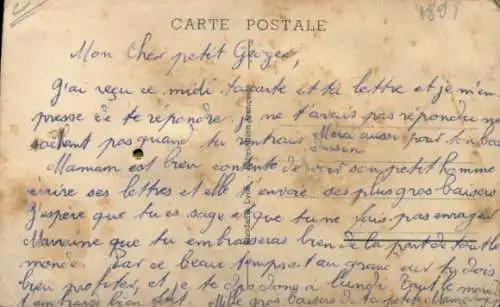 1897
CARTE POSTALE
Mon Cher petit Georges,
J'ai reçu ce midi ta carte et ta lettre et je m'em
presse de te répondre, je ne t'avais pas répondu ne
sachant pas quand tu rentrais Merci aussi pour ton beau
dessin
Maman est bien contente de voir son petit homme
écrire ses lettres et elle t'envoie des plus gros baisers
J'espère que tu es sage et que tu ne fais pas enrager
Marraine que tu embrasseras bien de la part de tout le
monde. Par ce beau temps tu dois
bien profiter, et je te dis donc à lundi. Tout le monde
t'embrasse bien fort. Mille gros baisers de ta petite Maman